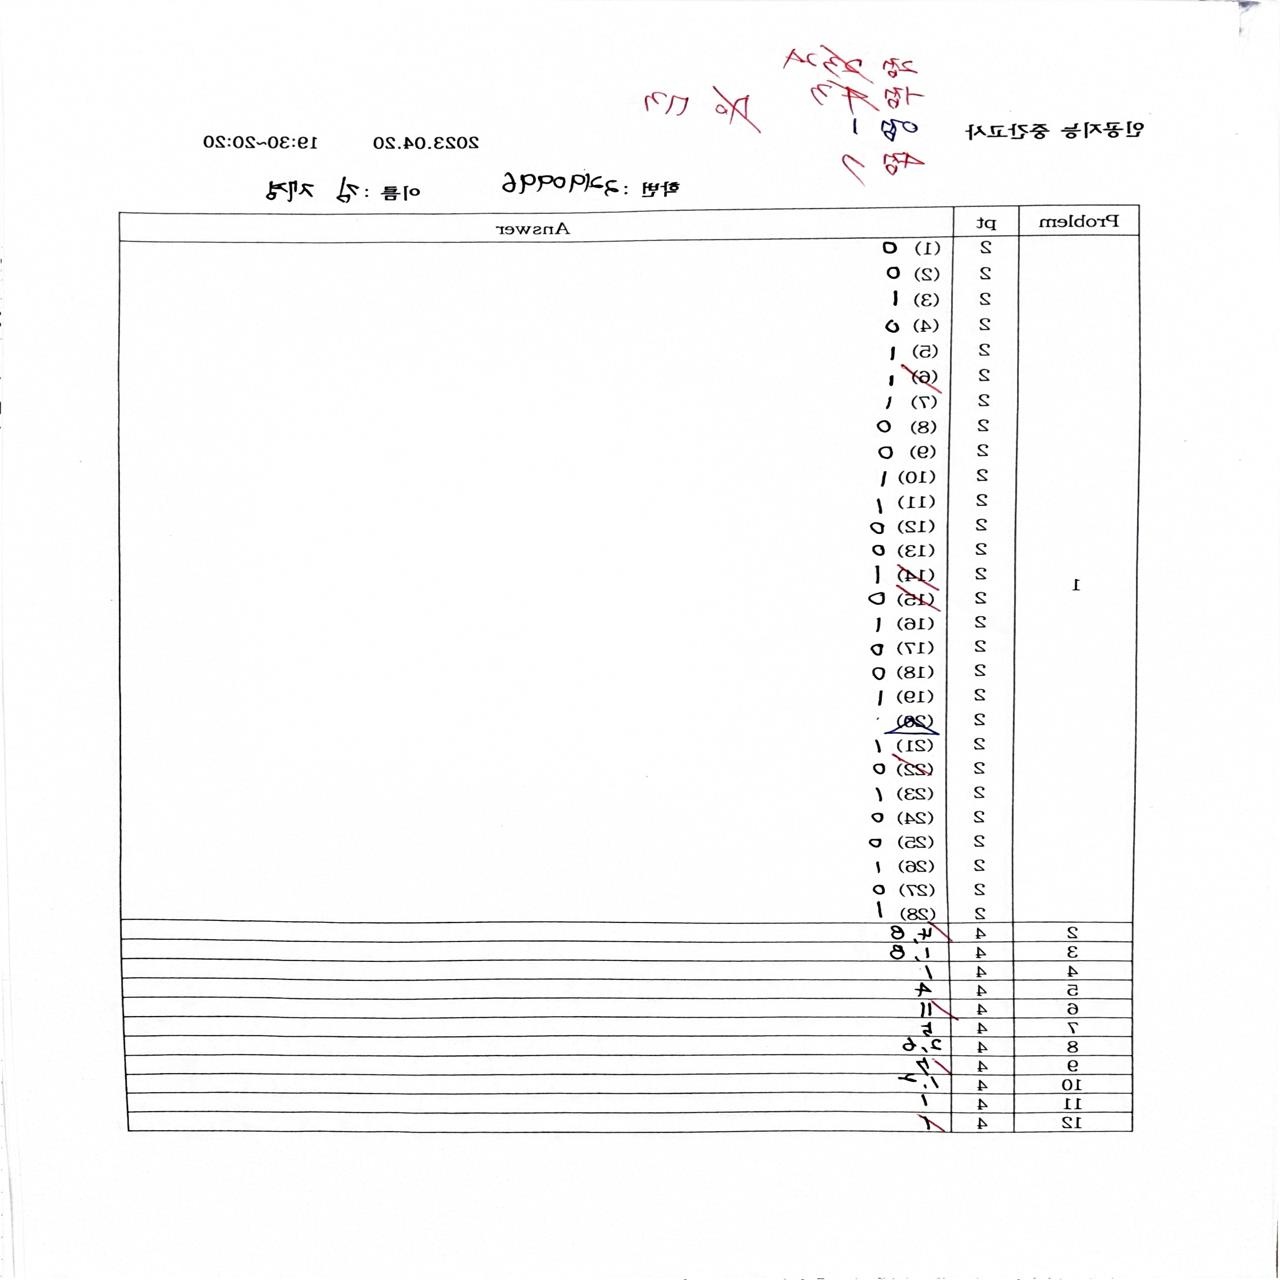 인공지능 중간고사 2023.04.20 19:30~20:20
학번 : 이름 : 김
Problem pt Answer
1
2 (1) 0
2 (2) 0
2 (3) 1
2 (4) 0
2 (5) 1
2 (6) 1
2 (7) 1
2 (8) 0
2 (9) 0
2 (10) 1
2 (11) 1
2 (12) 0
2 (13) 0
2 (14) 1
2 (15) 0
2 (16) 1
2 (17) 0
2 (18) 0
2 (19) 1
2 (20)
2 (21) 1
2 (22) 0
2 (23) 1
2 (24) 0
2 (25) 0
2 (26) 1
2 (27) 0
2 (28) 1
2 4
3 4
4 4
5 4 4
6 4
7 4
8 4
9 4
10 4
11 4
12 4